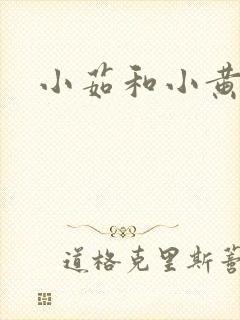 小茹和小黄
道格克里斯